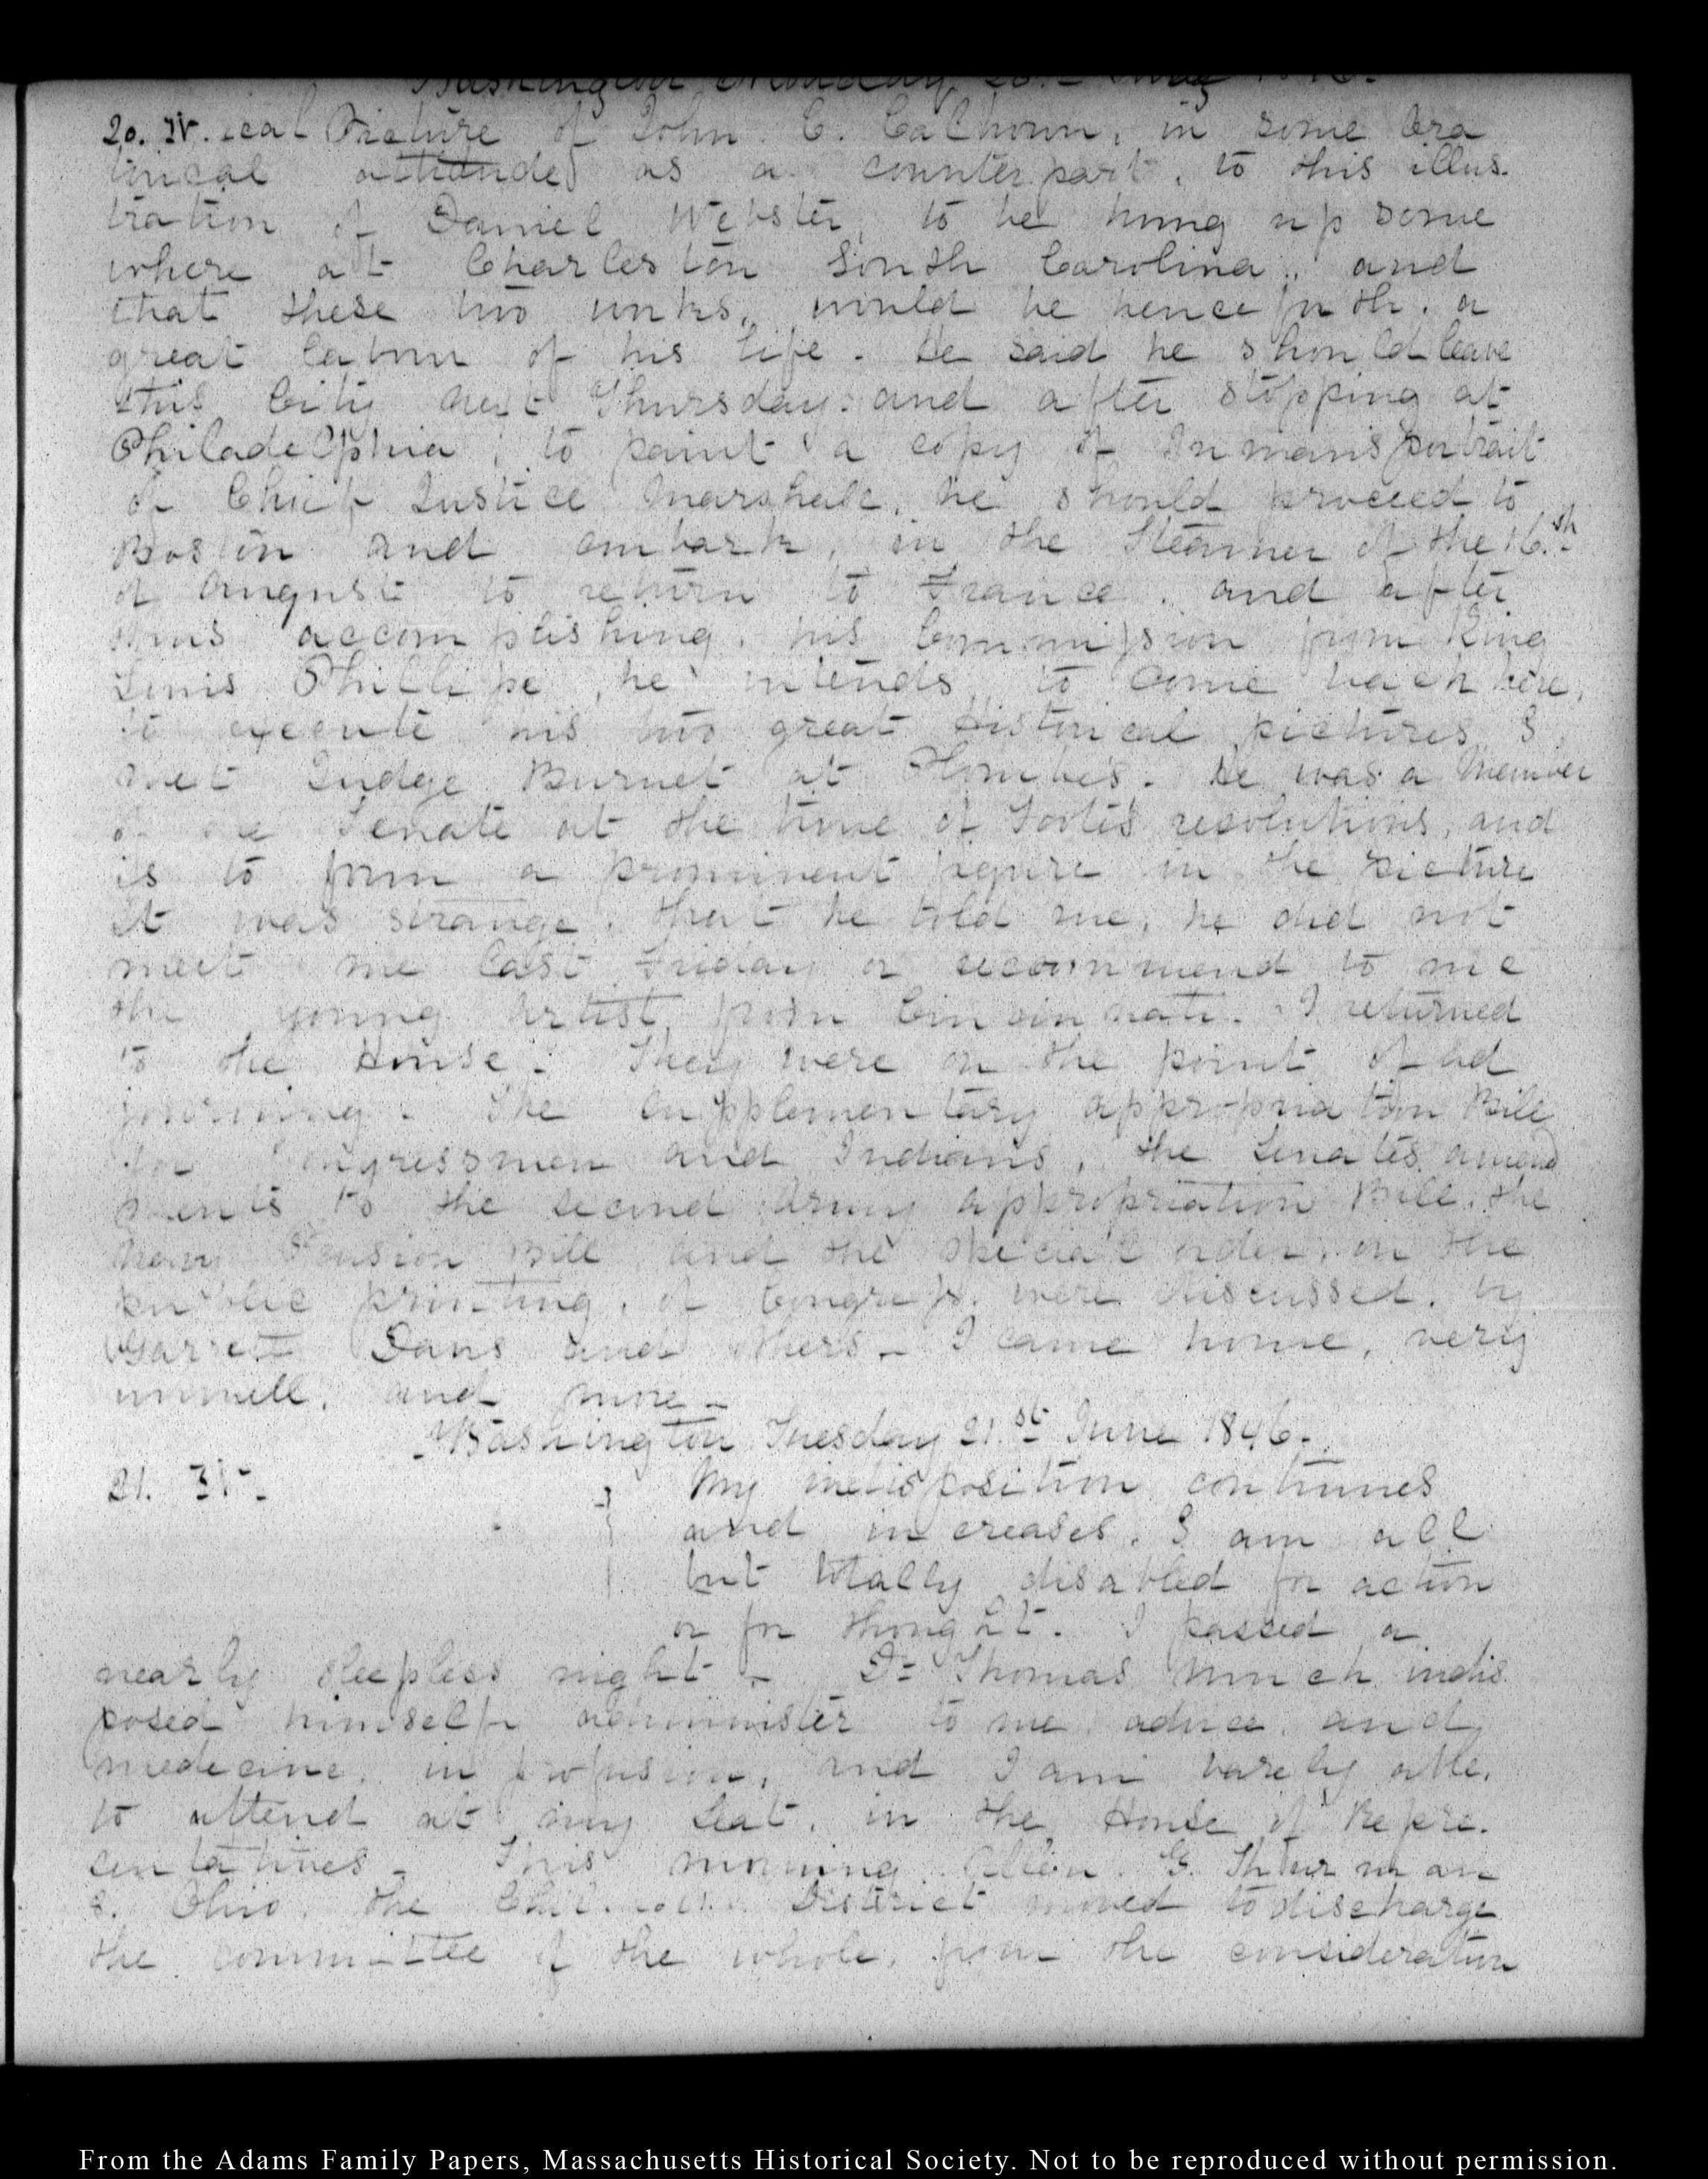 Washington Monday 20.
20. IV. ical Picture of John C. Calhoun, in some Ora
torical attitude as a counterpart, to this illus-
tration of Daniel Webster, to be hung up some
where at Charleston South Carolina, and
that these two works, would be henceforth, a
great labour of his life. He said he should leave
this City next Thursday: and after stopping at
Philadelphia, to paint a copy of Inman's portrait
of Chief Justice Marshall, he should proceed to
Boston and embark, in the Steamer of the 16.th
of August to return to France, and after
thus accomplishing, his Commission from King
Louis Phillipe, he intends, to come back here,
to execute his two great Historical pictures I
met Judge Burnet at Plumbe's. He was a Member
of the Senate at the time of Foote's resolutions, and
is to form a prominent figure in the picture
It was strange, that he told me, he did not
meet me last Friday or recommend to me
the young Artist, from Cincinnati. I returned
to the House. They were on the point of ad
journing. The Supplementary appropriation Bill
for Congressmen and Indians, the Senates amend
ments to the second Army appropriation Bill, the
Navy Pension Bill and the special order, on the
public printing, of Congress, were discussed, by
Garrett Davis and others. I came home, very
unwell, and more
Washington Tuesday 21.st June 1846.
21. IV.
My indisposition continues
and increases. I am all
but totally disabled for action
or for thought. I passed a
nearly sleepless night. Dr Thomas much indis
posed himself administer to me advice, and
medecine, in profusion, and I am barely able,
to attend at my Seat, in the House of Repre-
sentatives. This morning Allen. G. Thurman
8. Ohio, the District moved to discharge
the committee of the whole, from the consideration
From the Adams Family Papers, Massachusetts Historical Society. Not to be reproduced without permission.